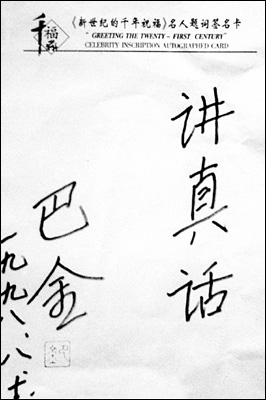 千福
《新世纪的千年祝福》名人题词签名卡
" GREETING THE TWENTY - FIRST CENTURY"
CELEBRITY INSCRIPTION AUTOGRAPHED CARD
讲真话
巴金
一九九八.八.